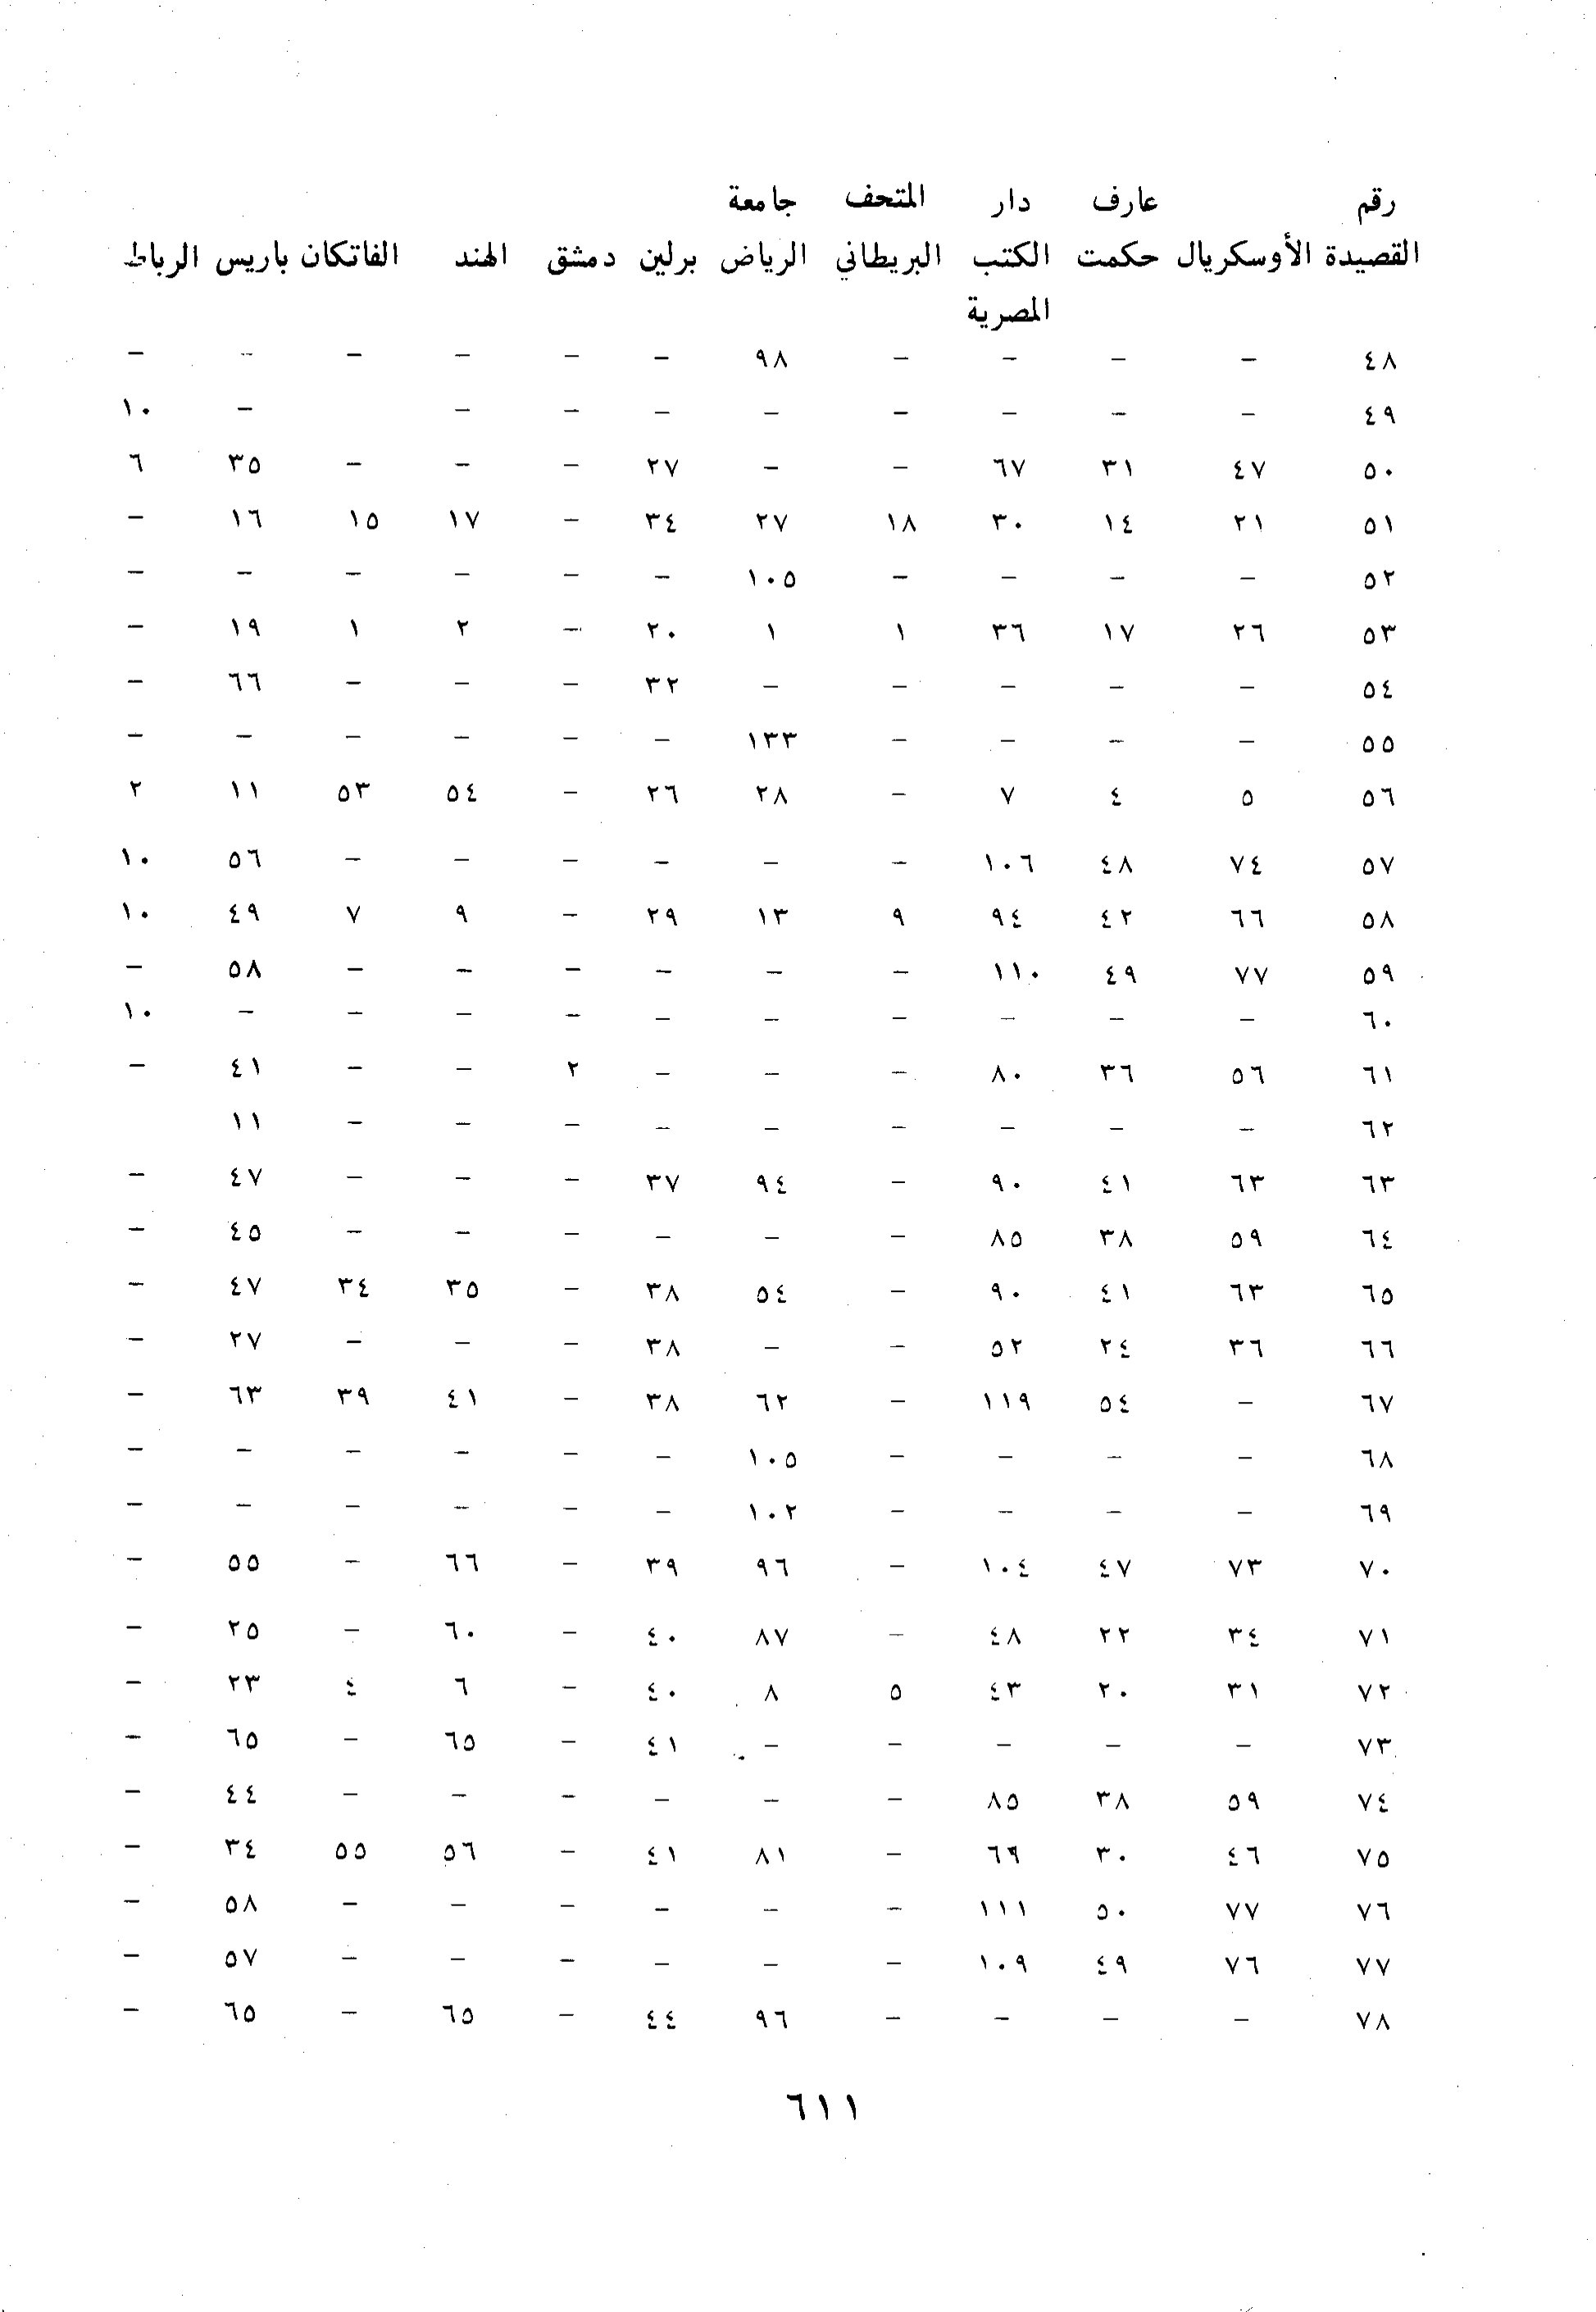 رقم عارف دار المتحف جامعة
القصيدة الأوسكريال حكمت الكتب البريطاني الرياض برلين دمشق الهند الفاتكان باريس الرباط
المصرية
٤٨ – – – – ٩٨ – – – – – –
٤٩ – – – – – – – – – ١٠
٥٠ ٤٧ ٣١ ٦٧ – – ٢٧ – – – ٣٥ ٦
٥١ ٢١ ١٤ ٣٠ ١٨ ٢٧ ٣٤ – ١٧ ١٥ ١٦ –
٥٢ – – – – ١٠٥ – – – – – –
٥٣ ٢٦ ١٧ ٣٦ ١ ١ ٢٠ – ٢ ١ ١٩ –
٥٤ – – – – – ٣٢ – – – ٦٦ –
٥٥ – – – – ١٣٣ – – – – – –
٥٦ ٥ ٤ ٧ – ٢٨ ٢٦ – ٥٤ ٥٣ ١١ ٢
٥٧ ٧٤ ٤٨ ١٠٦ – – – – – – ٥٦ ١٠
٥٨ ٦٦ ٤٢ ٩٤ ٩ ١٣ ٢٩ – ٩ ٧ ٤٩ ١٠
٥٩ ٧٧ ٤٩ ١١٠ – – – – – – ٥٨ –
٦٠ – – – – – – – – – – ١٠
٦١ ٥٦ ٣٦ ٨٠ – – – ٢ – – ٤١ –
٦٢ – – – – – – – – – ١١
٦٣ ٦٣ ٤١ ٩٠ – ٩٤ ٣٧ – – – ٤٧ –
٦٤ ٥٩ ٣٨ ٨٥ – – – – – – ٤٥ –
٦٥ ٦٣ ٤١ ٩٠ – ٥٤ ٣٨ – ٣٥ ٣٤ ٤٧ –
٦٦ ٣٦ ٢٤ ٥٢ – – ٣٨ – – – ٢٧ –
٦٧ – ٥٤ ١١٩ – ٦٢ ٣٨ – ٤١ ٣٩ ٦٣ –
٦٨ – – – – ١٠٥ – – – – – –
٦٩ – – – – ١٠٢ – – – – – –
٧٠ ٧٣ ٤٧ ١٠٤ – ٩٦ ٣٩ – ٦٦ – ٥٥ –
٧١ ٣٤ ٢٢ ٤٨ – ٨٧ ٤٠ – ٦٠ – ٢٥ –
٧٢ ٣١ ٢٠ ٤٣ ٥ ٨ ٤٠ – ٦ ٤ ٢٣ –
٧٣ – – – – – ٤١ – ٦٥ – ٦٥ –
٧٤ ٥٩ ٣٨ ٨٥ – – – – – – ٤٤ –
٧٥ ٤٦ ٣٠ ٦٩ – ٨١ ٤١ – ٥٦ ٥٥ ٣٤ –
٧٦ ٧٧ ٥٠ ١١١ – – – – – – ٥٨ –
٧٧ ٧٦ ٤٩ ١٠٩ – – – – – – ٥٧ –
٧٨ – – – – ٩٦ ٤٤ – ٦٥ – ٦٥ –
٦١١